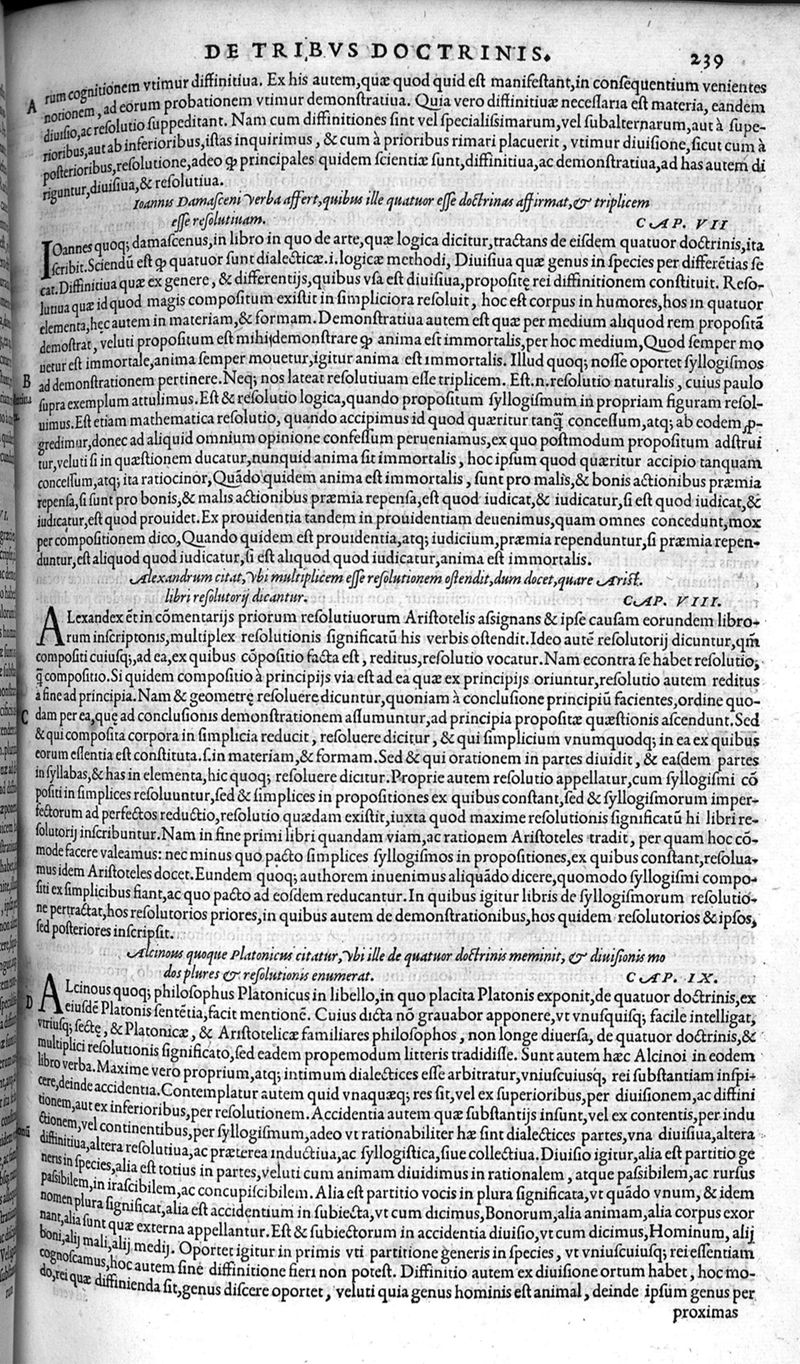 DE TRIBVS DOCTRINIS.
239
rum cognitionem vtimur diffinitiua. Ex his autem, quæ quod quid eſt manifeſtant, in conſequentium venientes
A notionem, ad eorum probationem vtimur demonſtratiua. Quia vero diffinitiuæ neceſſaria eſt materia, eandem
diuiſio, ac reſolutio ſuppeditant. Nam cum diffinitiones ſint vel ſpecialiſſimarum, vel ſubalternarum, aut à ſupe-
rioribus, aut ab inferioribus, iſtas inquirimus, & cum à prioribus rimari placuerit, vtimur diuiſione, ſicut cum à
poſterioribus, reſolutione, adeo ꝙ principales quidem ſcientiæ ſunt, diffinitiua, ac demonſtratiua, ad has autem di
riguntur, diuiſiua, & reſolutiua.
Ioannis Damaſceni verba affert, quibus ille quatuor eſſe doctrinas affirmat, & triplicem
eſſe reſolutiuam. CAP. VII
IOannes quoq; damaſcenus, in libro in quo de arte, quæ logica dicitur, tractans de eiſdem quatuor doctrinis, ita
ſcribit. Sciendū eſt ꝙ quatuor ſunt dialecticæ .i. logicæ methodi, Diuiſiua quæ genus in ſpecies per differētias ſe
cat. Diffinitiua quæ ex genere, & differentijs, quibus vſa eſt diuiſiua, propoſitę rei diffinitionem conſtituit. Reſo-
lutiua quæ id quod magis compoſitum exiſtit in ſimpliciora reſoluit, hoc eſt corpus in humores, hos in quatuor
elementa, hęc autem in materiam, & formam. Demonſtratiua autem eſt quæ per medium aliquod rem propoſitā
demoſtrat, veluti propoſitum eſt mihi demonſtrare ꝙ anima eſt immortalis, per hoc medium, Quod ſemper mo
uetur eſt immortale, anima ſemper mouetur, igitur anima eſt immortalis. Illud quoq; noſſe oportet ſyllogiſmos
B ad demonſtrationem pertinere. Neq; nos lateat reſolutiuam eſſe triplicem. Eſt .n. reſolutio naturalis, cuius paulo
ſupra exemplum attulimus. Eſt & reſolutio logica, quando propoſitum ſyllogiſmum in propriam figuram reſol-
uimus. Eſt etiam mathematica reſolutio, quando accipimus id quod quæritur tanq̄ conceſſum, atq; ab eodem ꝓ-
gredimur, donec ad aliquid omnium opinione confeſſum perueniamus, ex quo poſtmodum propoſitum adſtrui
tur, veluti ſi in quæſtionem ducatur, nunquid anima ſit immortalis, hoc ipſum quod quæritur accipio tanquam
conceſſum, atq; ita ratiocinor, Quādo quidem anima eſt immortalis, ſunt pro malis, & bonis actionibus præmia
repenſa, ſi ſunt pro bonis, & malis actionibus præmia repenſa, eſt quod iudicat, & iudicatur, ſi eſt quod iudicat, &
iudicatur, eſt quod prouidet. Ex prouidentia tandem in prouidentiam deuenimus, quam omnes concedunt, mox
per compoſitionem dico, Quando quidem eſt prouidentia, atq; iudicium, præmia rependuntur, ſi præmia repen-
duntur, eſt aliquod quod iudicatur, ſi eſt aliquod quod iudicatur, anima eſt immortalis.
Alexandrum citat, vbi multiplicem eſſe reſolutionem oſtendit, dum docet, quare Ariſt.
libri reſolutorij dicantur. CAP. VIII.
ALexandex ēt in cōmentarijs priorum reſolutiuorum Ariſtotelis aſsignans & ipſe cauſam eorundem libro-
rum inſcriptonis, multiplex reſolutionis ſignificatū his verbis oſtendit. Ideo autē reſolutorij dicuntur, qm̄
compoſiti cuiuſq;, ad ea, ex quibus cōpoſitio facta eſt, reditus, reſolutio vocatur. Nam econtra ſe habet reſolutio,
q̄ compoſitio. Si quidem compoſitio à principijs via eſt ad ea quæ ex principijs oriuntur, reſolutio autem reditus
a fine ad principia. Nam & geometrę reſoluere dicuntur, quoniam à concluſione principiū facientes, ordine quo-
C dam per ea, quę ad concluſionis demonſtrationem aſſumuntur, ad principia propoſitæ quæſtionis aſcendunt. Sed
& qui compoſita corpora in ſimplicia reducit, reſoluere dicitur, & qui ſimplicium vnumquodq; in ea ex quibus
eorum eſſentia eſt conſtituta .ſ. in materiam, & formam. Sed & qui orationem in partes diuidit, & eaſdem partes
in ſyllabas, & has in elementa, hic quoq; reſoluere dicitur. Proprie autem reſolutio appellatur, cum ſyllogiſmi cō
poſiti in ſimplices reſoluuntur, ſed & ſimplices in propoſitiones ex quibus conſtant, ſed & ſyllogiſmorum imper-
fectorum ad perfectos reductio, reſolutio quædam exiſtit, iuxta quod maxime reſolutionis ſignificatū hi libri re-
ſolutorij inſcribuntur. Nam in fine primi libri quandam viam, ac rationem Ariſtoteles tradit, per quam hoc cō-
mode facere valeamus: nec minus quo pacto ſimplices ſyllogiſmos in propoſitiones, ex quibus conſtant, reſolua-
mus idem Ariſtoteles docet. Eundem quoq; authorem inuenimus aliquādo dicere, quomodo ſyllogiſmi compo-
ſiti ex ſimplicibus fiant, ac quo pacto ad eoſdem reducantur. In quibus igitur libris de ſyllogiſmorum reſolutio-
ne pertractat, hos reſolutorios priores, in quibus autem de demonſtrationibus, hos quidem reſolutorios & ipſos,
ſed poſteriores inſcripſit.
Alcinous quoque Platonicus citatur, vbi ille de quatuor doctrinis meminit, & diuiſionis mo
dos plures & reſolutionis enumerat. CAP. IX.
D ALcinous quoq; philoſophus Platonicus in libello, in quo placita Platonis exponit, de quatuor doctrinis, ex
eiuſdē Platonis ſentētia, facit mentionē. Cuius dicta nō grauabor apponere, vt vnuſquiſq; facile intelligat,
vtriuſq; ſectę, & Platonicæ, & Ariſtotelicæ familiares philoſophos, non longe diuerſa, de quatuor doctrinis, &
multiplici reſolutionis ſignificato, ſed eadem propemodum litteris tradidiſſe. Sunt autem hæc Alcinoi in eodem
libro verba. Maxime vero proprium, atq; intimum dialectices eſſe arbitratur, vniuſcuiuſq, rei ſubſtantiam inſpi-
cere, deinde accidentia. Contemplatur autem quid vnaquæq; res ſit, vel ex ſuperioribus, per diuiſionem, ac diffini
tionem, aut ex inferioribus, per reſolutionem. Accidentia autem quæ ſubſtantijs inſunt, vel ex contentis, per indu
ctionem, vel continentibus, per ſyllogiſmum, adeo vt rationabiliter hæ ſint dialectices partes, vna diuiſiua, altera
diffinitiua, altera reſolutiua, ac præterea inductiua, ac ſyllogiſtica, ſiue collectiua. Diuiſio igitur, alia eſt partitio ge
neris in ſpecies, alia eſt totius in partes, veluti cum animam diuidimus in rationalem, atque paſsibilem, ac rurſus
paſsibilem, in iraſcibilem, ac concupiſcibilem. Alia eſt partitio vocis in plura ſignificata, vt quādo vnum, & idem
nomen plura ſignificat, alia eſt accidentium in ſubiecta, vt cum dicimus, Bonorum, alia animam, alia corpus exor
nant, alia ſunt quæ externa appellantur. Eſt & ſubiectorum in accidentia diuiſio, vt cum dicimus, Hominum, alij
boni, alij mali, alij medij. Oportet igitur in primis vti partitione generis in ſpecies, vt vniuſcuiuſq; rei eſſentiam
cognoſcamus, hoc autem ſine diffinitione fieri non poteſt. Diffinitio autem ex diuiſione ortum habet, hoc mo-
do, rei quæ diffinienda ſit, genus diſcere oportet, veluti quia genus hominis eſt animal, deinde ipſum genus per
proximas